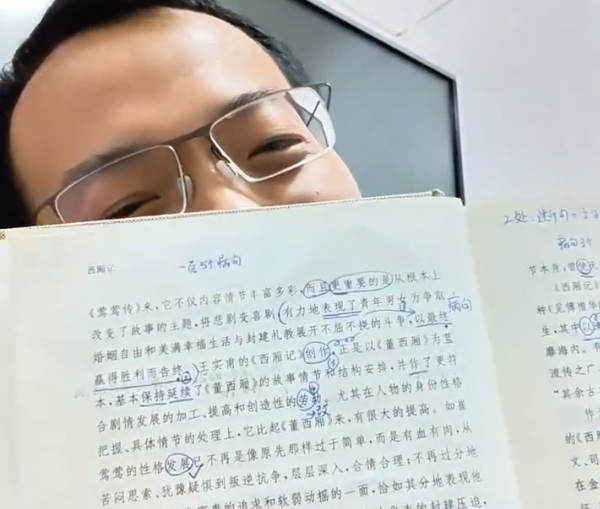 西厢记
一页5个病句
《莺莺传》来，它不仅内容情节丰富多彩，而且更重要的是从根本上
改变了故事的主题，将悲剧变喜剧，有力地表现了青年男女为争取
婚姻自由和美满幸福生活与封建礼教展开不屈不挠的斗争，以最终
病句
赢得胜利而告终。王实甫的《西厢记》创作，正是以《董西厢》为蓝
本，基本保持延续了《董西厢》的故事情节和结构安排，并作了更符
合剧情发展的加工、提高和创造性的劳动。尤其在人物的身份性格
改
把握、具体情节的处理上，它比起《董西厢》来，有很大的提高。如崔
莺莺的性格发展已不再是像原先那样过于简单，而是有血有肉，从
苦闷思索、犹豫疑惧到叛逆抗争，层层深入，合情合理；不再过分地
的追求和软弱动摇的一面，恰如其分地表现他
的封建压迫，
2处
病句
节本月，曾
《西厢记》
种《见佛
生，其中以
靡海内。
流传之广
“其余古
作
的《西
文、司
在金